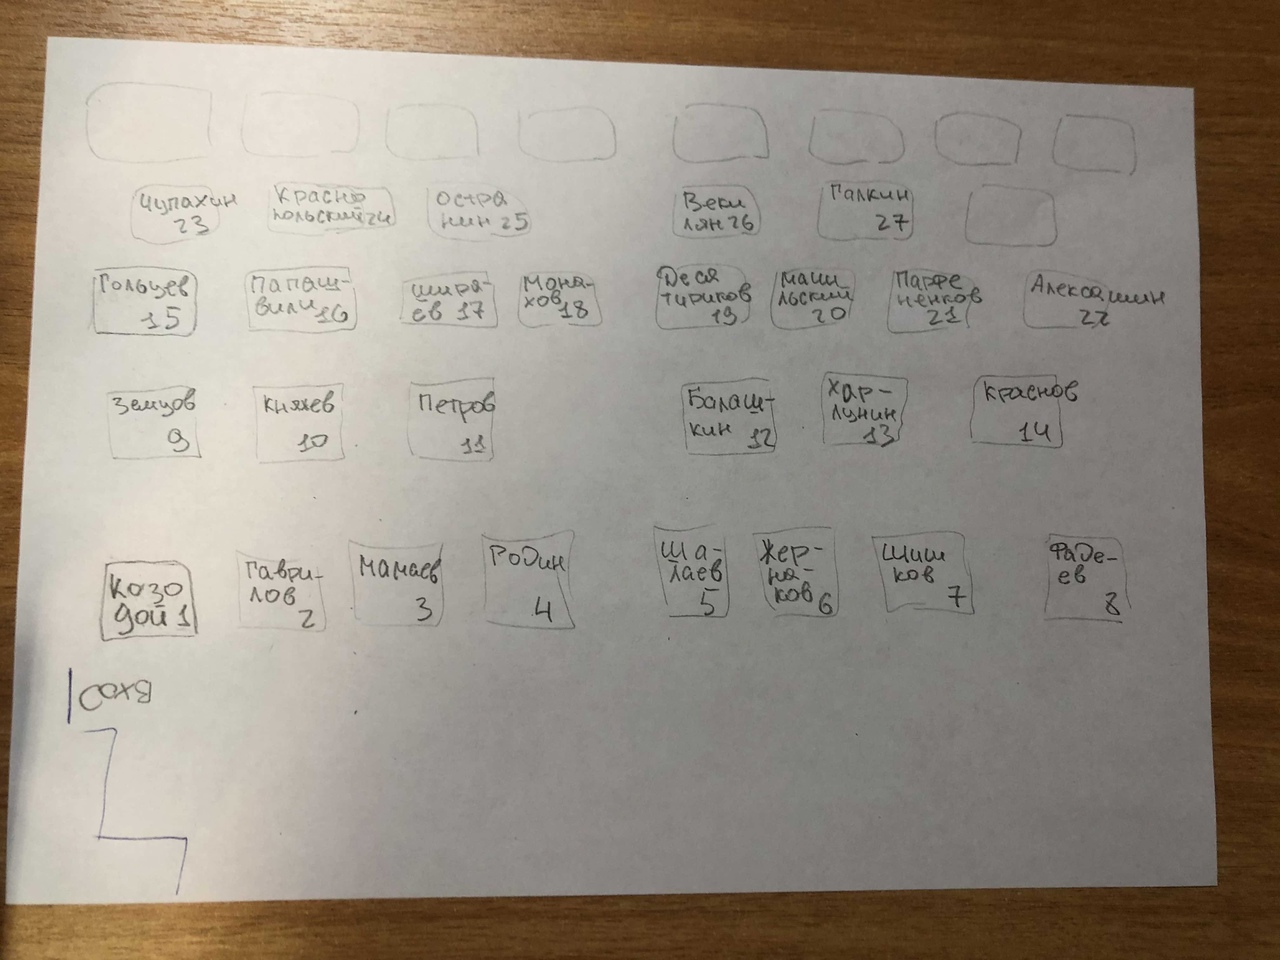 Чупахин
23
Красно
польский 24
Остра
нин 25
Веки
лян 26
Галкин
27
Гольцев
15
Папаш-
вили 16
Шира-
ев 17
Мона-
хов 18
Деся
тириков
19
Маши
льский
20
Парфе
ненков
21
Алексашин
22
Земцов
9
Князев
10
Петров
11
Балаш-
кин 12
Хар-
лунин
13
Краснов
14
Козо
дой 1
Гаври-
лов
2
Мамаев
3
Родин
4
Ша-
лаев
5
Жер-
на-
ков 6
Шиш
ков
7
Фаде-
ев
8
Вход